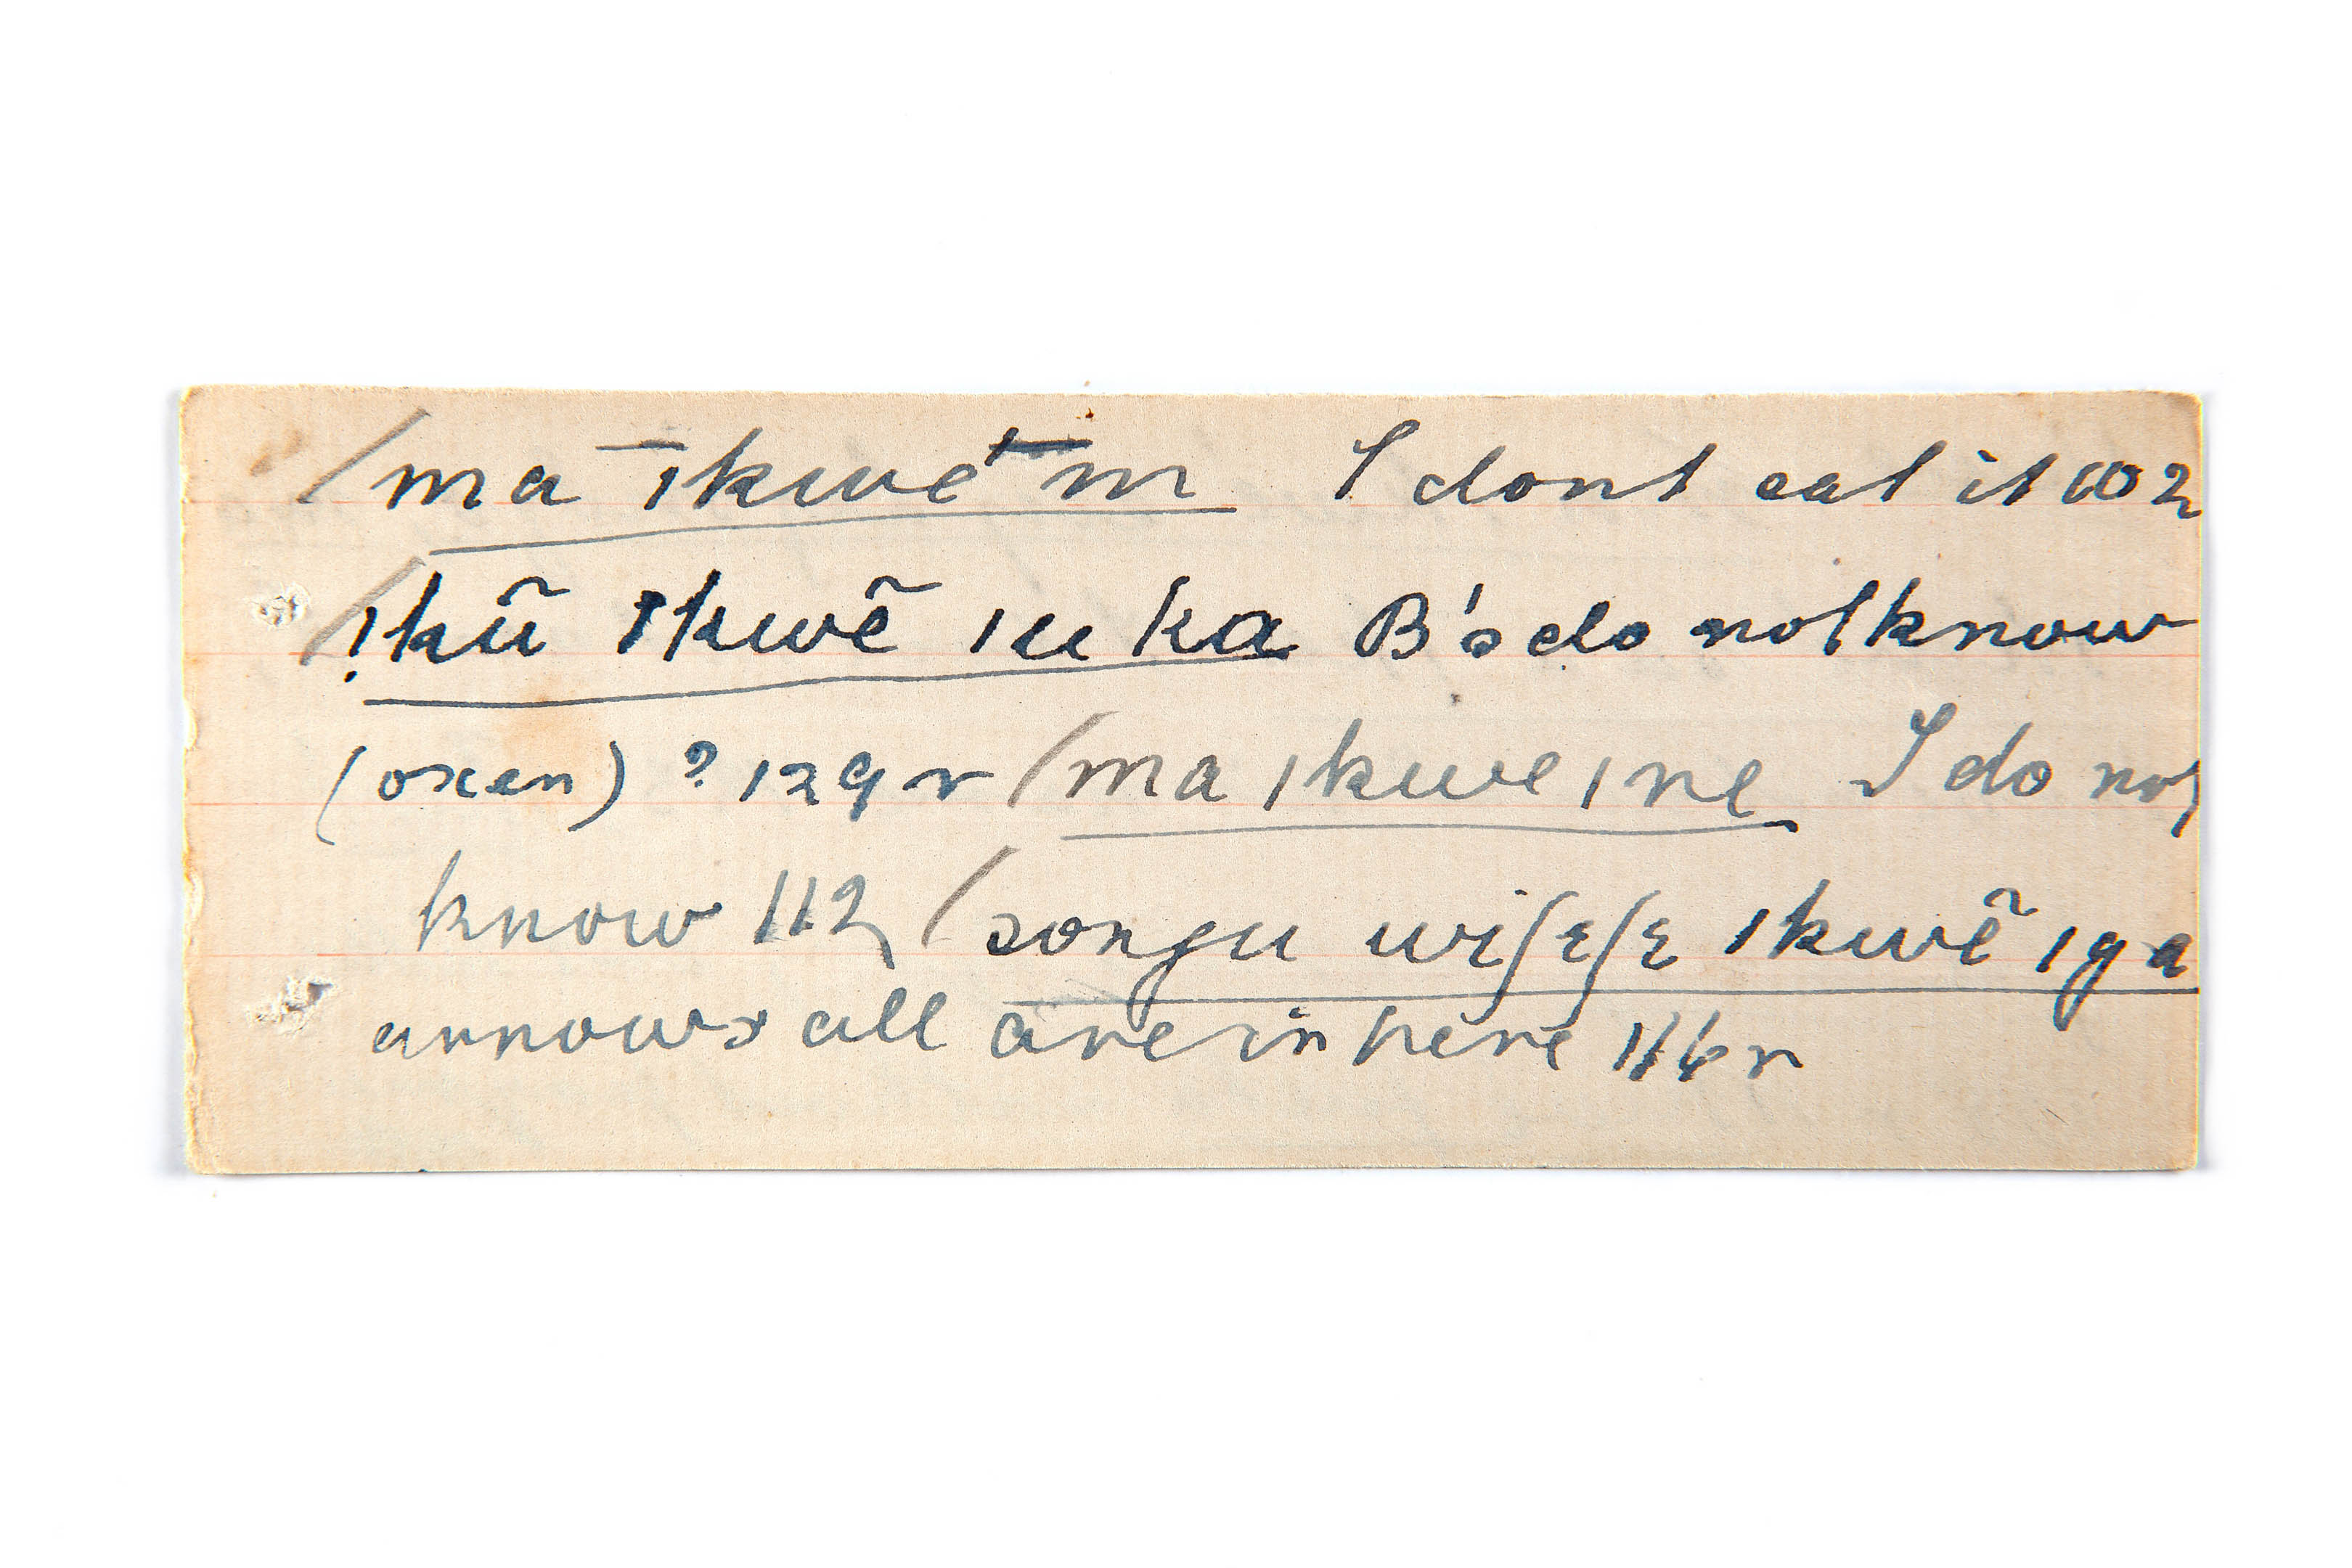 /ma ˉıkwe' m I dont eat it 102
/!kũ ıkwẽ ıu ka B's do not know
(oxen) ? 129 r /ma ıkwe ıne I do not
know 112 /songu wiʃɛʃɛ ıkwẽ ıga
arrows all are in here 116 r